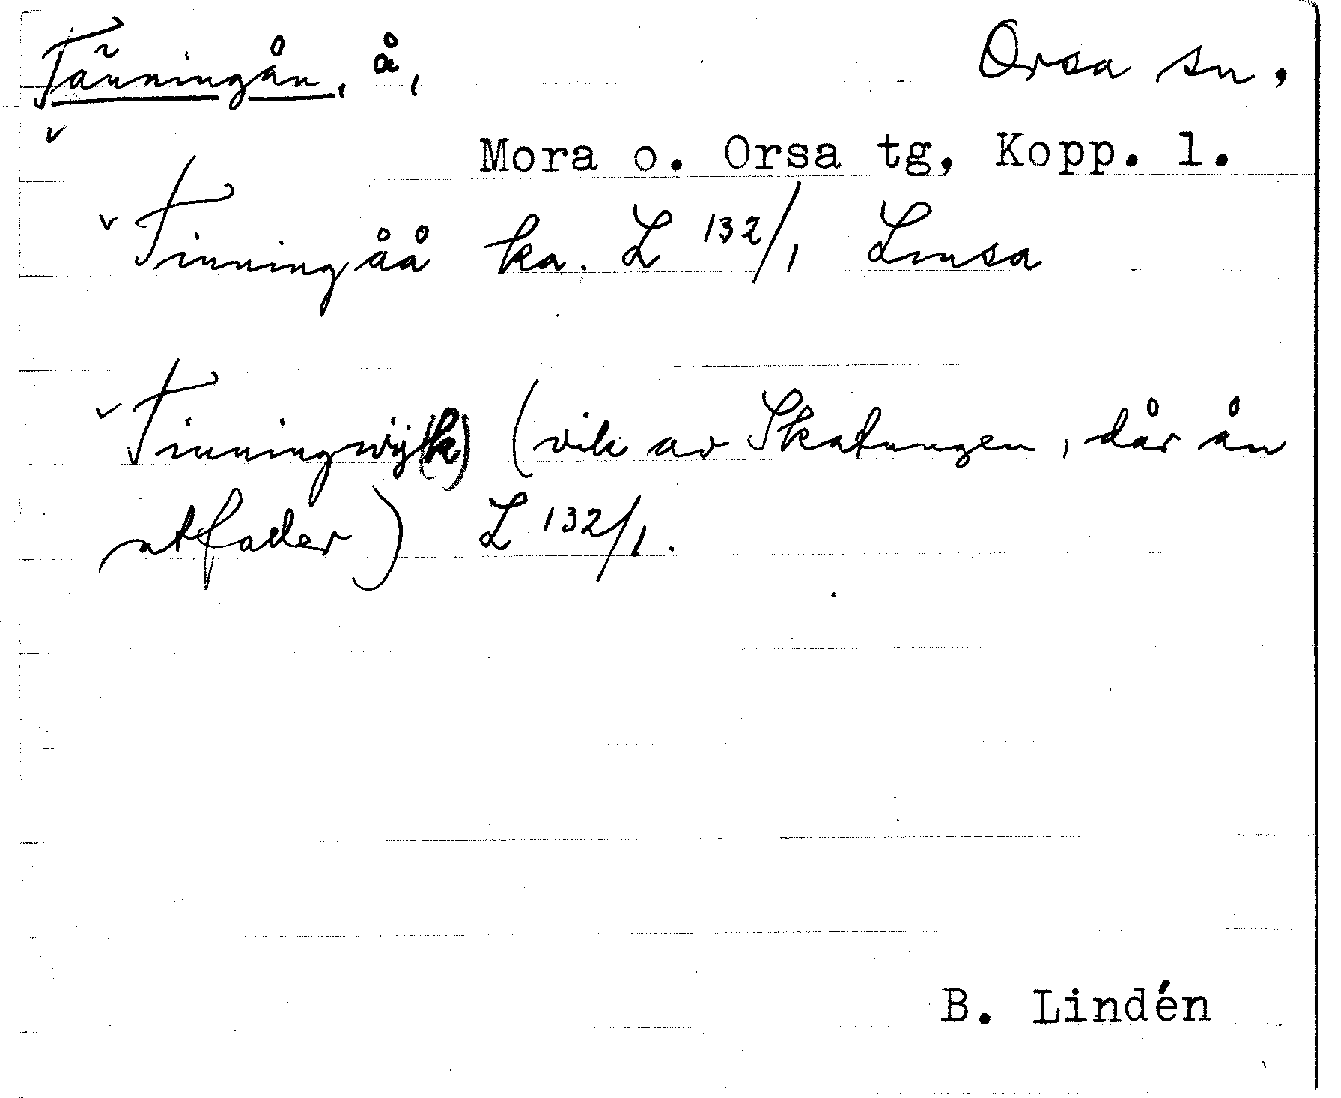 Tänningån, å,
Orsa sn.
Mora o. Orsa tg, Kopp. l.
Tinningåå ka. L 132/1 Lmsa
Tinningwij(k) (vik av Skatungen, där ån
utfaller) L 132/1.
B. Lindén